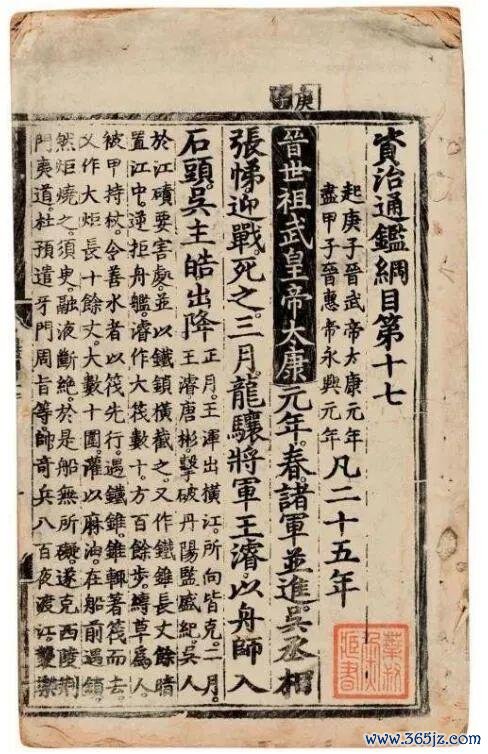 資治通鑑綱目第十七
起庚子晉武帝太康元年
盡甲子晉惠帝永興元年
凡二十五年
晉世祖武皇帝太康元年。春。諸軍並進。吳丞相
張悌迎戰。死之。三月。龍驤將軍王濬。以舟師入
石頭。吳主皓出降
正月。王渾出橫江。所向皆克。二月。
王濬唐彬擊破丹陽監盛紀。吳人
於江磧要害處。並以鐵鎖橫截之。又作鐵錐長丈餘。暗
置江中。逆拒舟艦。濬作大筏數十。方百餘步。縛草爲人。
被甲持杖。令善水者以筏先行。遇鐵錐。錐輒著筏而去。
又作大炬。長十餘丈。大數十圍。灌以麻油。在船前。遇鎖
然炬燒之。須臾。融液斷絶。於是船無所礙。遂克西陵荆
門夷道。杜預遣牙門周旨等。帥奇兵八百夜渡江。襲樂
www.365jz.com